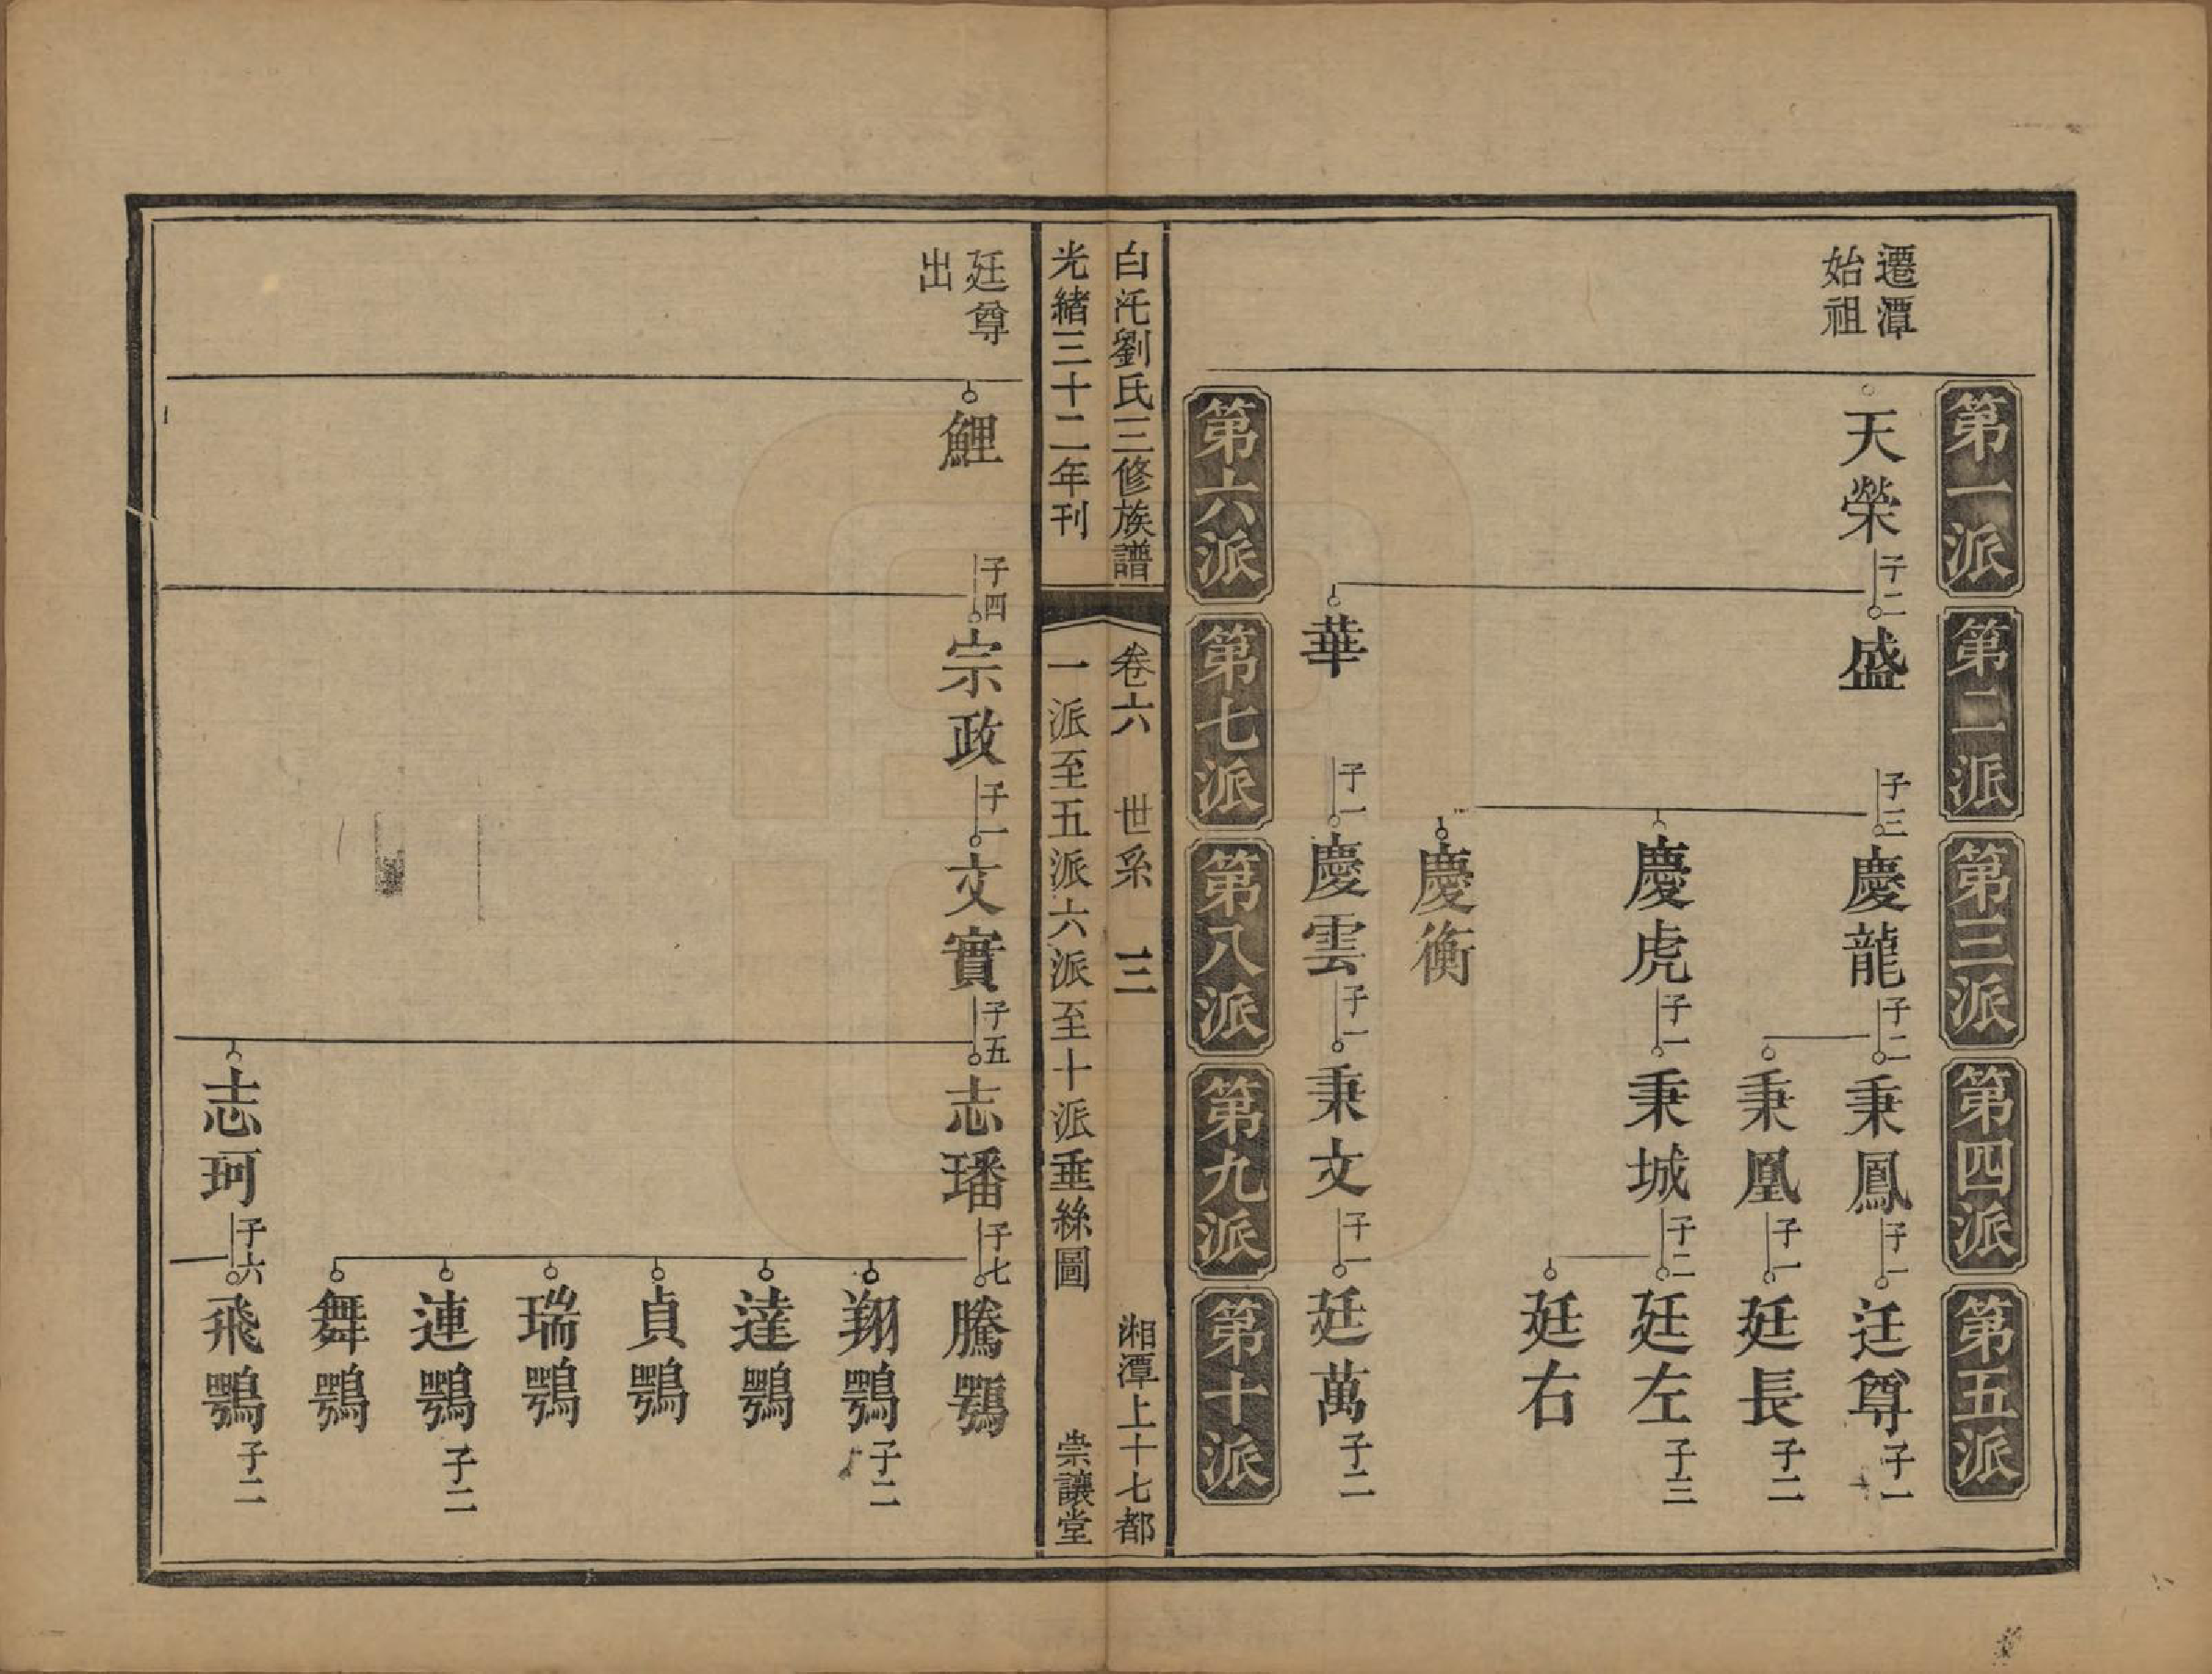 第一派
第二派
第三派
第四派
第五派
遷潭
始祖
天榮
子二
盛
子三
慶龍
子二
秉鳳
子一
廷尊
子一
秉凰
子一
廷長
子二
慶虎
子一
秉城
子二
廷左
子三
廷右
慶衡
華
子一
慶雲
子一
秉文
子一
廷萬
子二
第六派
第七派
第八派
第九派
第十派
白汑劉氏三修族譜
卷六 世系 三
湘潭上十七都
光緒三十二年刊
一派至五派六派至十派垂絲圖
崇讓堂
廷尊
出
鯉
子四
宗政
子一
文實
子五
志璠
子七
騰鶚
翔鶚
子二
達鶚
貞鶚
瑞鶚
連鶚
子二
舞鶚
志珂
子六
飛鶚
子二